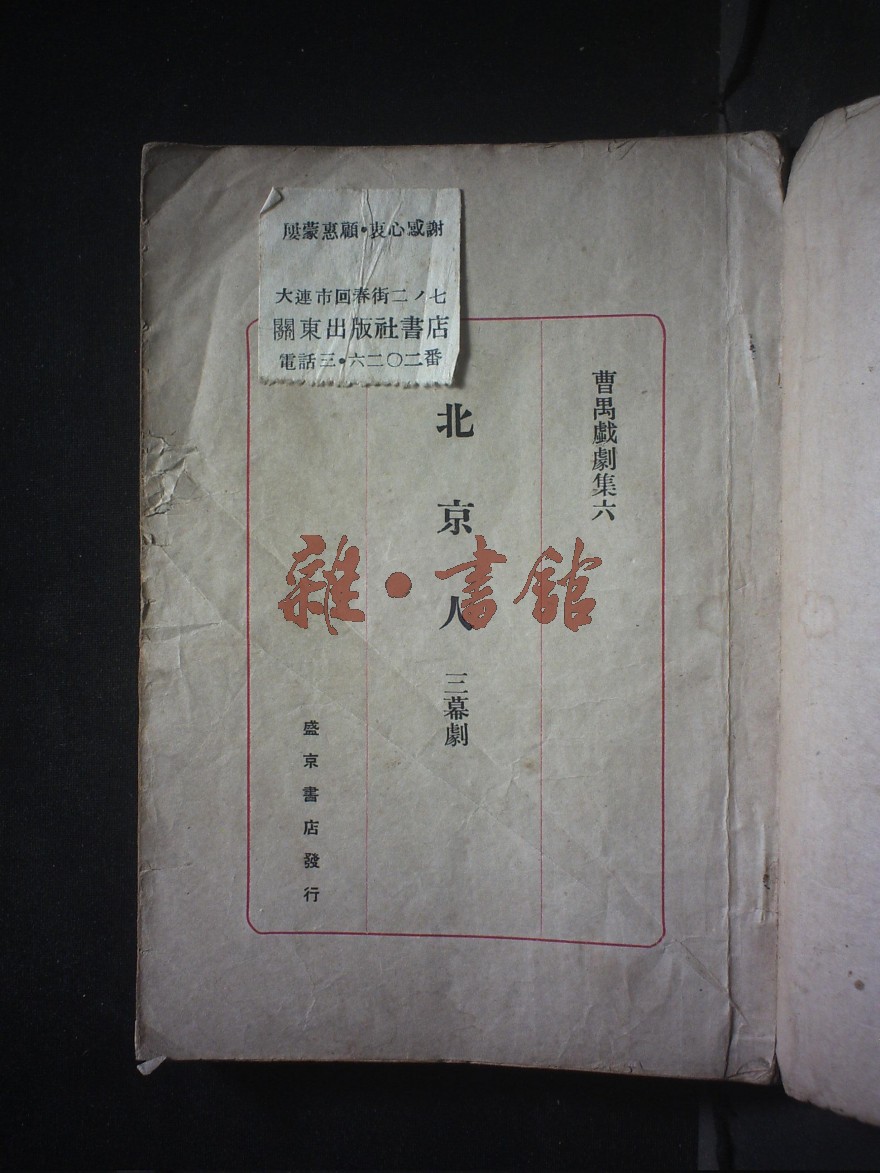 屢蒙惠顧•衷心感謝
大連市回春街二ノ七
關東出版社書店
電話三•六二〇二番
曹禺戲劇集六
北京人 三幕劇
盛京書店發行
雜•書館